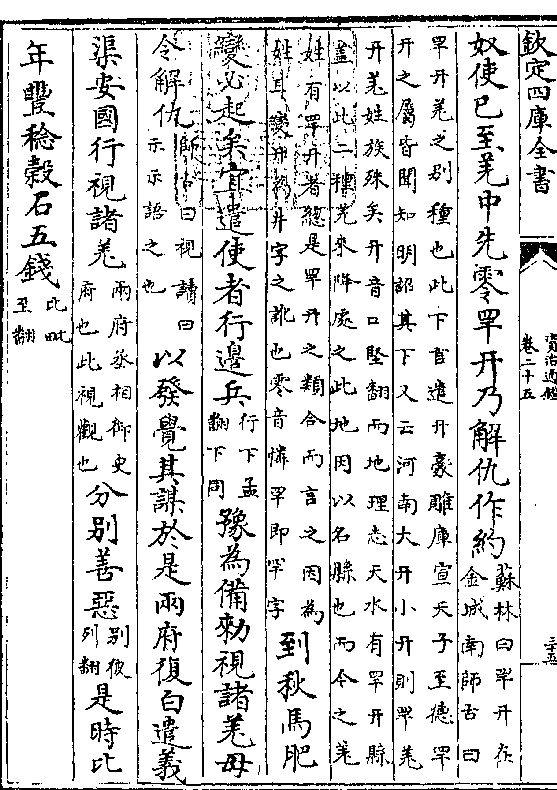 欽定四庫全書
資治通鑑
卷二十五
奴使已至羌中先零罕幵乃解仇作約蘇林曰罕幵在金城南師古曰
罕幵羌之别種也此下言遣幵豪雕庫宣天子至德罕
幵之屬皆聞知明詔其下又云河南大幵小幵則罕羌
幵羌姓族殊矣幵音口堅翻而地理志天水有罕幵縣
盖以此二種羌來降處之此地因以名縣也而今之羌
姓有罕幵者總是罕幵之類合而言之因為
姓耳變幵為井字之訛也零音憐罕即罕字到秋馬肥
變必起矣宜遣使者行邊兵行下孟翻下同豫為備勑視諸羌毋
令解仇師古曰視讀曰示示語之也以發覺其謀於是兩府復白遣義
渠安國行視諸羌兩府丞相御史府也此視觀也分别善惡别彼列翻是時比
年豐稔穀石五錢比毗至翻